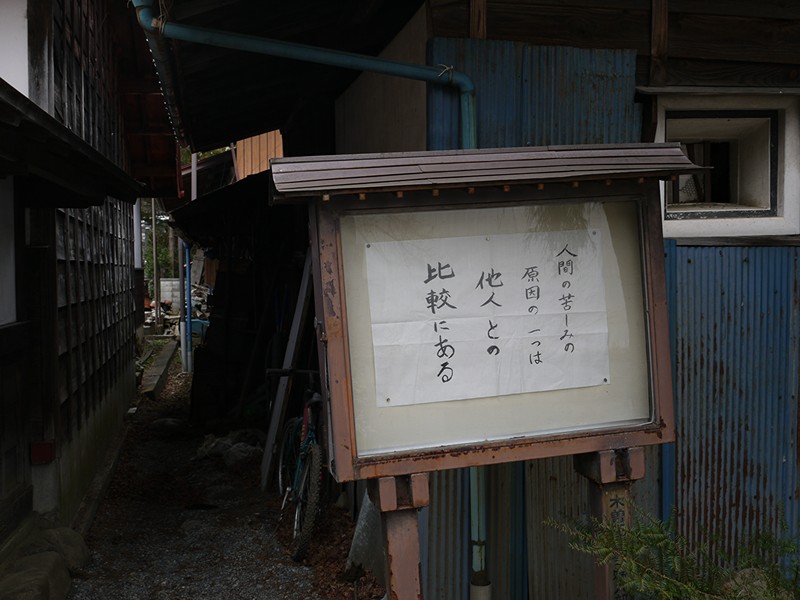 人間の苦しみの
原因の一つは
他人との
比較にある
木曽